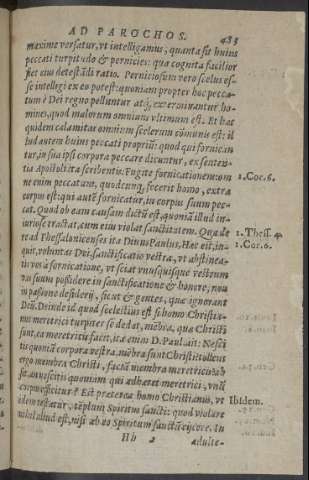 AD PAROCHOS. 483
maxime versatur, vt intelligamus, quanta sit huius
peccati turpitudo & pernicies: qua cognita facilior
fiet eius detestãdi ratio. Perniciosum vero scelus es-
se intelligi ex eo potest: quoniam propter hoc pecca-
tum è Dei regno pelluntur atq́, exterminantur ho-
mines, quod malorum omnium vltimum est. Et hæc
quidem calamitas omnium scelerum cõmunis est: il
lud autem huius peccati propriũ: quod qui fornican
tur, in sua ipsi corpora peccare dicuntur, ex senten-
tia Apostoli ita scribentis: Fugite fornicationem: om 1. Cor. 6.
ne enim peccatum, quodcunq́, fecerit homo, extra
corpus est: qui autẽ fornicatur, in corpus suum pec-
cat. Quod ob eam causam dictũ est, quoniã illud in-
iuriose tractat, cum eius violat sanctitatem. Qua de 1. Thess. 4.
re ad Thessalonicenses ita Diuus Paulus, Hæc est, in- 1. Cor. 6.
quit, voluntas Dei: sanctificatio vestra, vt abstinea-
tis vos à fornicatione, vt sciat vnusquisque vestrum
vas suum possidere in sanctificatione & honore, non
in passione desiderij, sicut & gentes, quæ ignorant
Deũ. Deinde id quod scelestius est si homo Christia-
nus meretrici turpiter se dedat, mẽbra, quæ Christi
sunt, ea meretricis facit, ita enim D. Paul. ait: Nesci
tis quoniã corpora vestra, mẽbra sunt Christi: tollens
ergo membra Christi, faciã membra meretricis? ab
sit. an nescitis quoniam qui adhæret meretrici, vnũ
corpus efficitur? Est præterea homo Christianus, vt Ibidem.
idem testatur, tẽplum Spiritus sancti: quod violare
nihil aliud est, nisi ab eo Spiritum sanctũ eijcere. In
Hh 2 adulte-